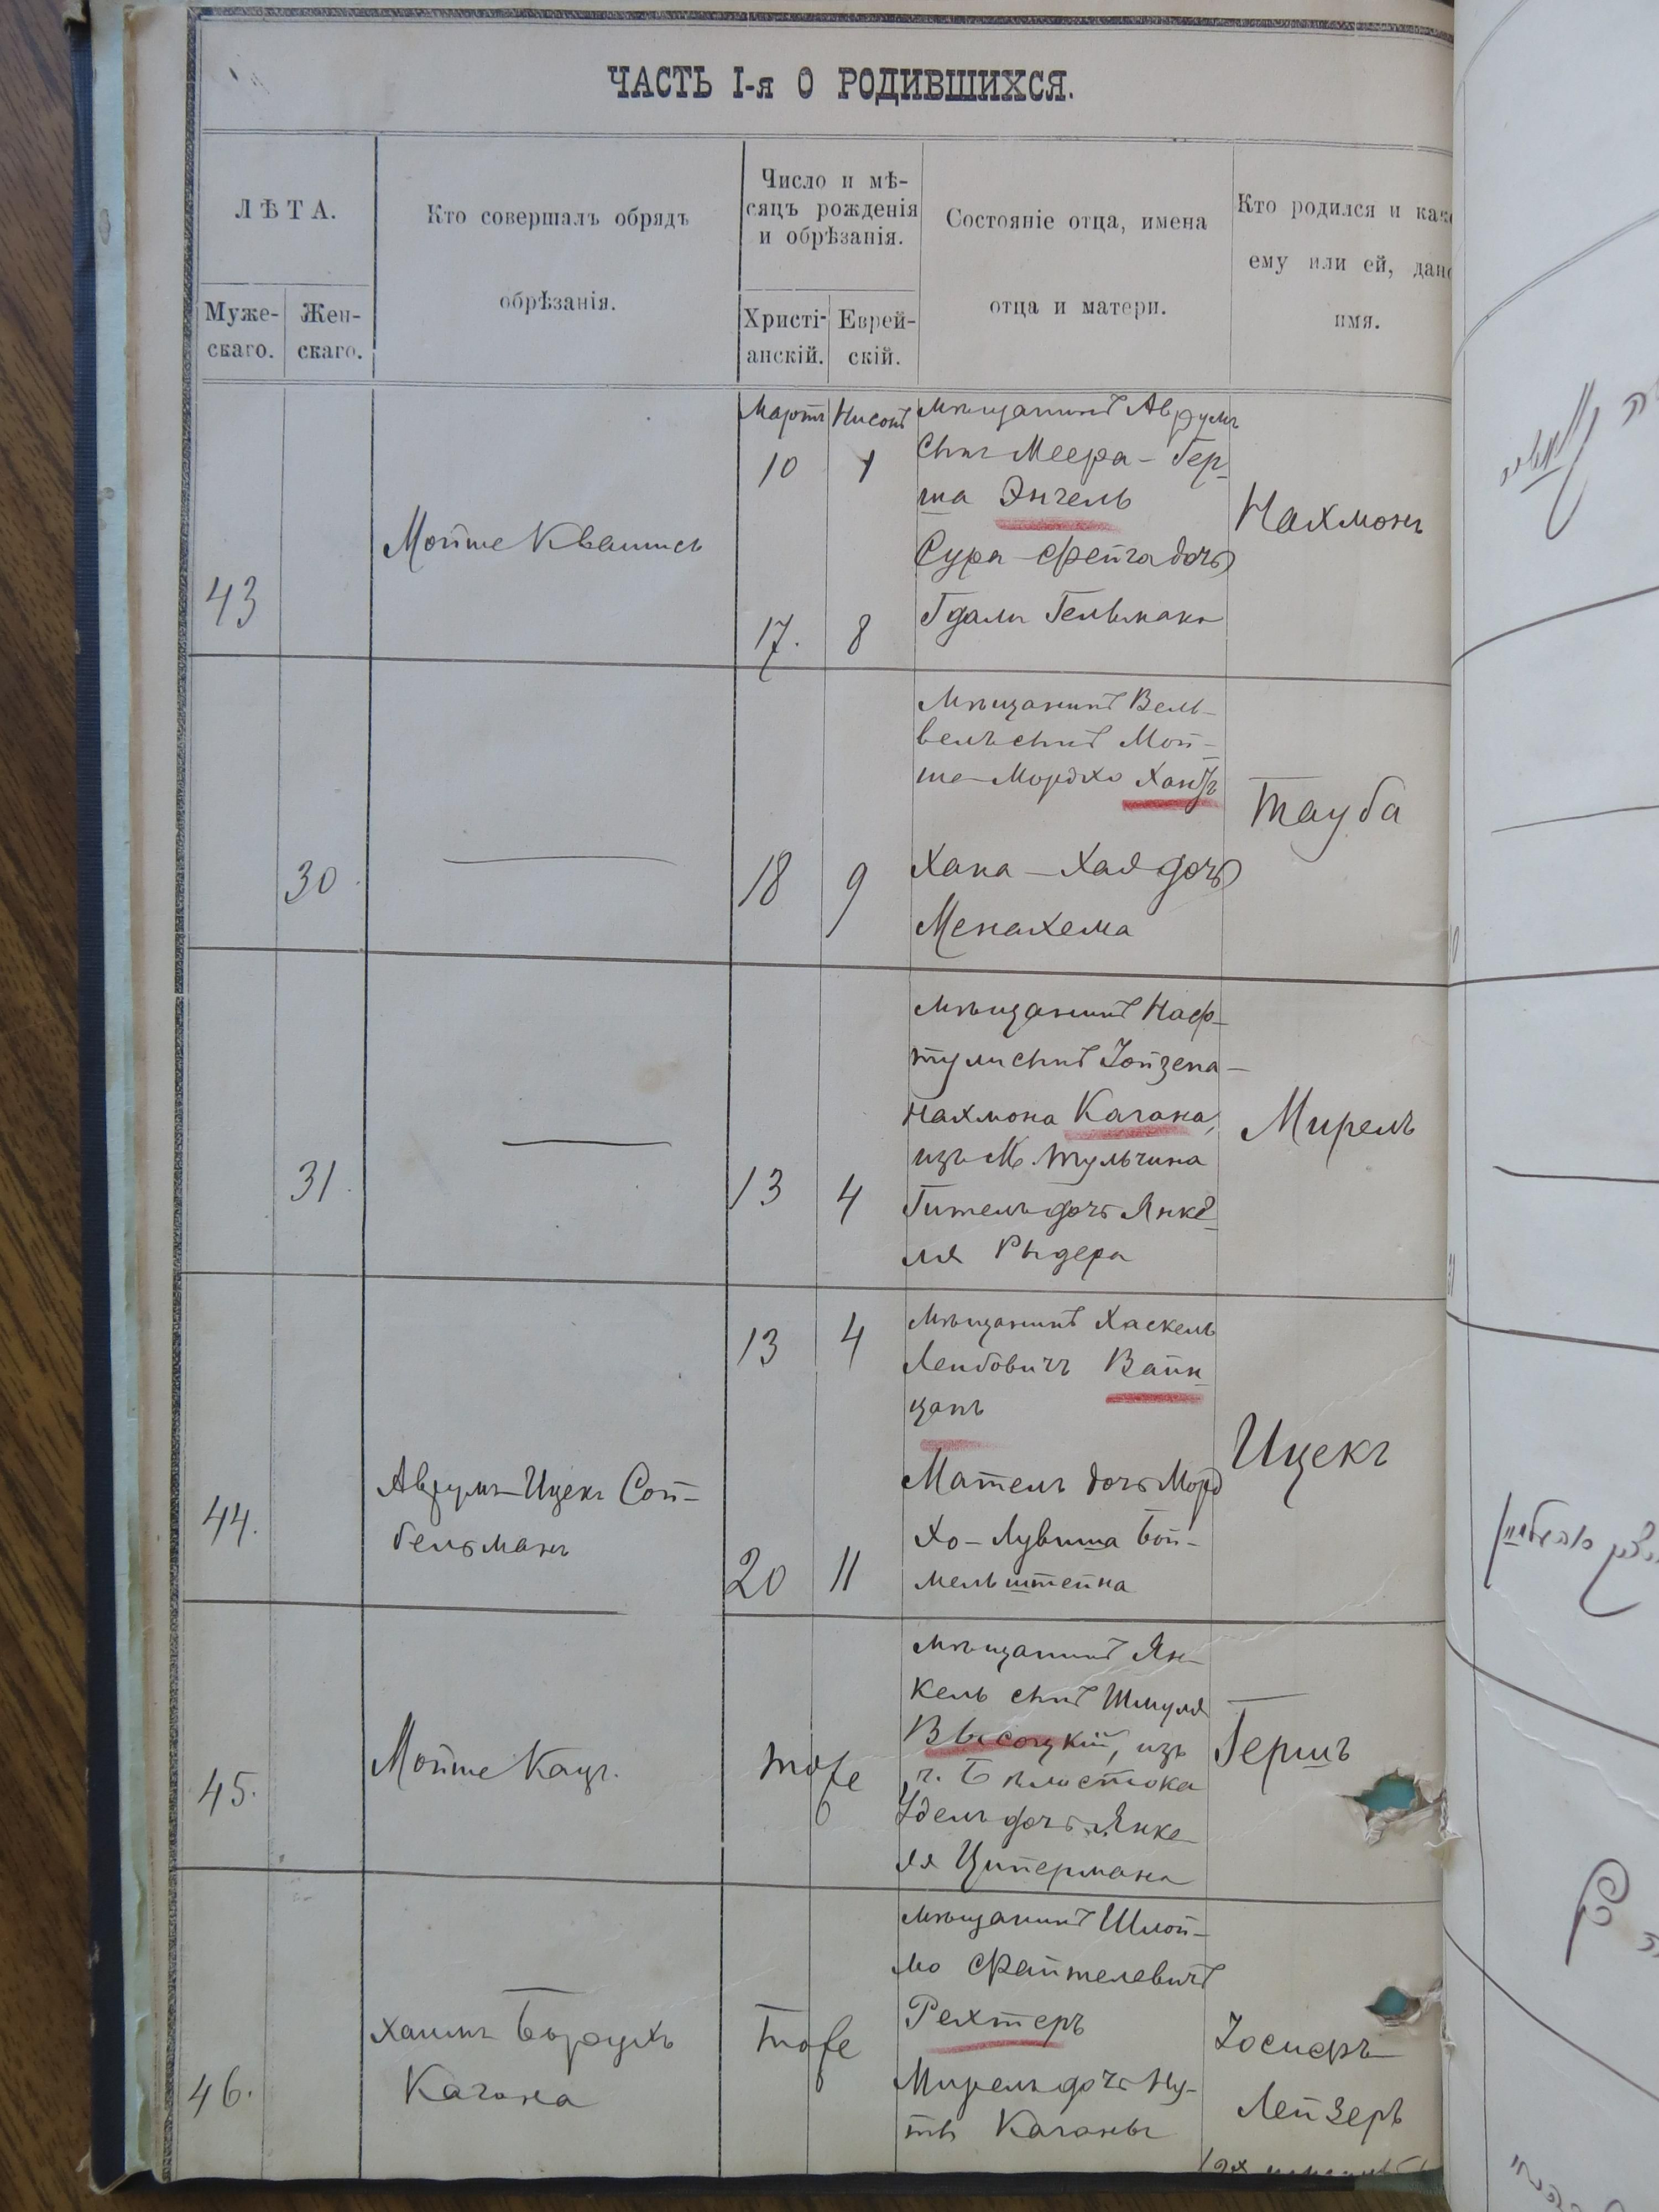 ЧАСТЬ I-я О РОДИВШИХСЯ.
ЛѢТА.
Муже-
скаго.
Жен-
скаго.
Кто совершалъ обрядъ
обрѣзанія.
Число и мѣ-
сяцъ рожденія
и обрѣзанія.
Христі-
анскій.
Еврей-
скій.
Состояніе отца, имена
отца и матери.
Кто родился и како
ему или ей, дано
имя.
43
Мойше Квашисъ
Мартъ Нисонъ
10 1
17. 8
мѣщанинъ Аврумъ
сынъ Меера-Гер-
ша Энгель
Сура-Фейга дочь
Гдали Гельмана
Нахмонъ
30
18 9
мѣщанинъ Вель-
велъ сынъ Мой-
ше-Мордхо
Хана-Хая дочь
Менахема
Тауба
31.
13 4
мѣщанинъ Наф-
тули сынъ
Нахмона Кагана,
изъ м. Тульчина
Гитель дочь Янке-
ля Рыдера
Мирель
44.
Аврумъ-Ицекъ Сой-
бельманъ
13 4
20 11
мѣщанинъ Хаскель
Лейбовичъ Вайн-
цанъ
Матель дочь Морд
хо-Лувиша Бой-
мельштейна
Ицекъ
45.
Мойше Кацъ.
тоже
мѣщанинъ Ян-
кель сынъ Шмуля
Высоцкій, изъ
г. Бѣлостока
Удель дочь Янке-
ля Ципермана
Гершъ
46.
Хаимъ Борухъ
Кагана
тоже
мѣщанинъ Шлой-
мо Файтелевичъ
Рехтеръ
Мирель дочь Ну-
ты Каганы
Іосифъ
Лейзеръ